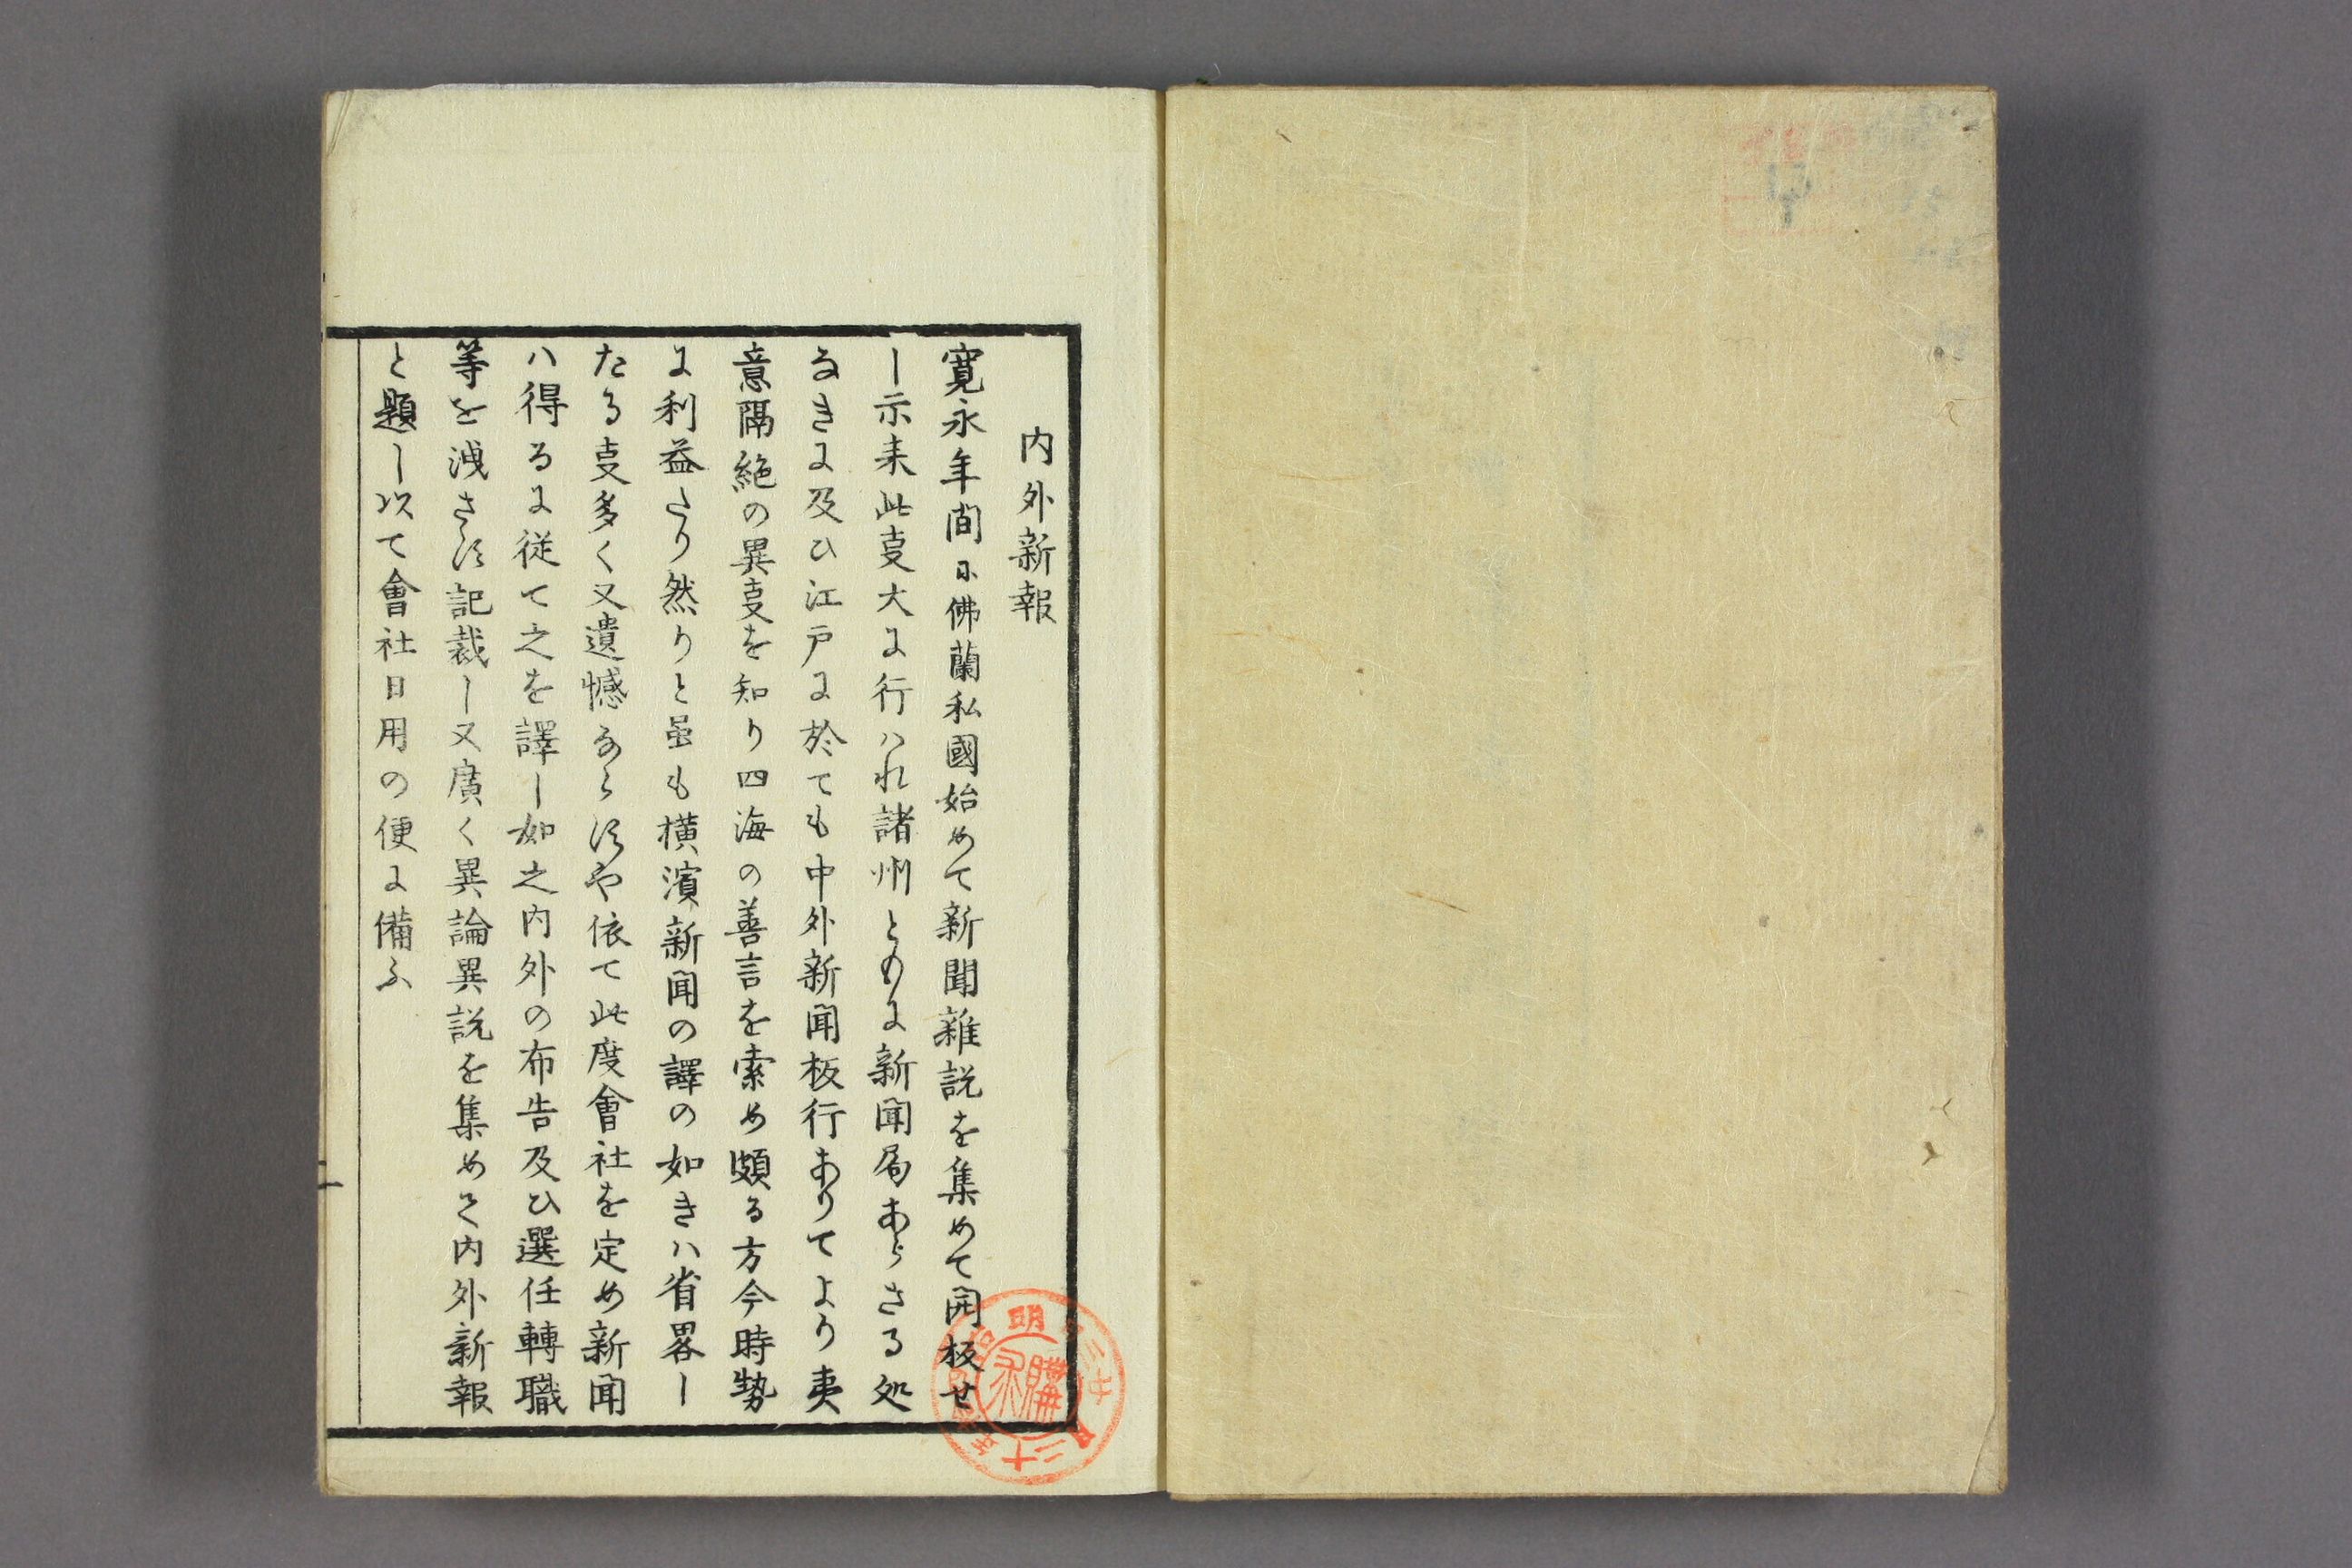 内外新報
寛永年間に佛蘭私國始めて新聞雜説を集めて開板せ
し示来此事大に行ハれ諸州ともに新聞局あらさる処
なきに及ひ江戸に於ても中外新聞板行ありてより夷
意隔絶の異事を知り四海の善言を索め頗る方今時勢
に利益たり然りと虽も横濱新聞の譯の如きハ省畧し
たる事多く又遺憾ならすや依て此度會社を定め新聞
ハ得るに従て之を譯し如之内外の布告及ひ選任轉職
等を洩さす記裁し又廣く異論異説を集めて内外新報
と題し以て會社日用の便に備ふ
一
明治
購求